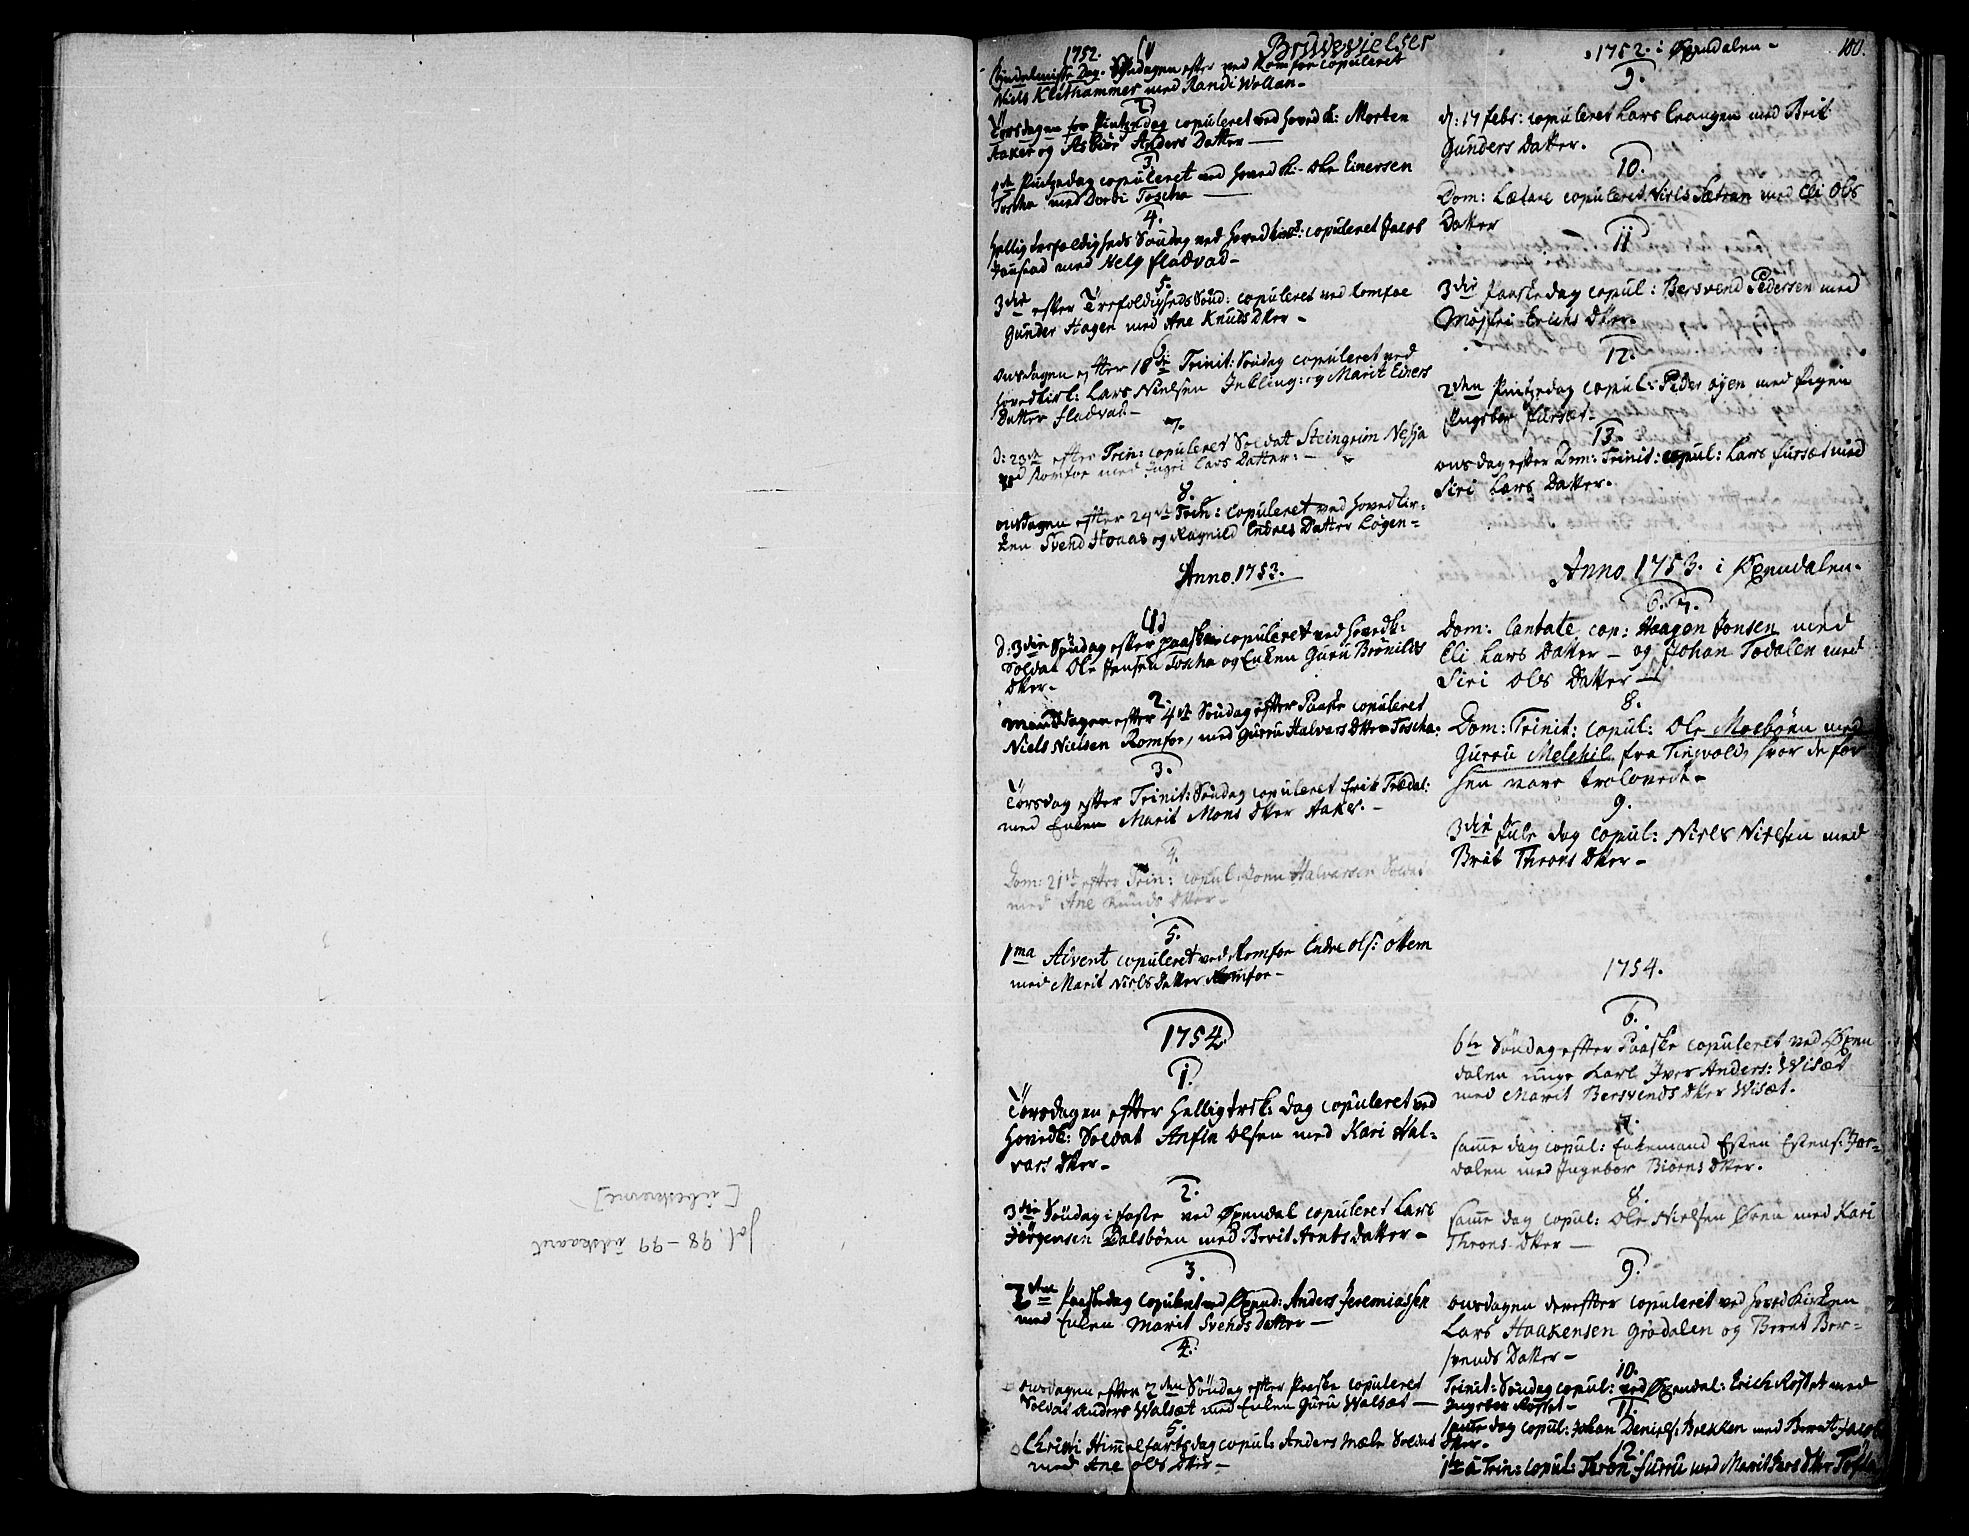 Brudevielser
1752. (1
Kyndelmisse Dag. Søndagen efter ved Romfoe copuleret
Niels Klethammer med Randi Wollan-
2
Torsdagen for Pintzedag copuleret ved hoved k: Morten
Aaker og Asbiør Anders Datter-
3
Pintzedag copuleret ved hoved k:- Ole Einersen
Toscha med Dordi Toscha
4.
Hellig trefoldigheds Søndag ved hovedkirk: copuleret Jacob
med Helg fladvad-
5.
3die efter Trefoldigheds Sønd: copuleret ved Romfoe
Gunder Hagen med Ane Knuds Dtter-
6
onsdagen efter 18de Trinit: Søndag copuleret ved
hovedkirk: Lars Nielsen og Marit Einers
Datter fladvad-
7.
D: 23de efter Trin: copuleret Soldatt Steingrim Nessia
ved Romfoe med Ingri Lars Datter:-
8.
onsdagen efter 24de Trin: copuleret ved hovedkir-
ken Svend Hoaas og Ragnild Endres Datter Løgen-
Anno 1753.
(1)
d: 3die Søndag efter paaske copuleret ved hovedk:
Soldat Ole Jensen Toscha og Enken Guru Brønilds
Dtter-
2.
Mandagen efter 4de Søndag efter Paaske copuleret
Niels Nielsen Romfoe, med Gurru Halvors Dtter Toscha.
3.
Torsdag efter Trinit: Søndag copuleret Erik Trædal:
med Enken Marit Mons Dtter Aaker.-
4.
Dom: 21de efter Trin: copul: Joen Halvorsen Soldat
med Ane Knuds Dtter-
5.
1ma Advent copuleret ved Romfoe Endre Ols: Ottem
med Marit Niels Datter Romfoe-
1754
1.
Torsdagen efter Hellig trek: dag copuleret ved
Hovedk: Soldat Anfin Olsen med Kari Hal-
vars Dtter-
2.
3die Søndag i faste ved Øxendal copuleret Lars
Jørgensen Dalsbøen med Berit Arnts Datter-
3.
2den Paaskedag copuleret ved Øxend: Anders Jeremiassen
med Enken Marit Svends Datter-
4.
onsdagen efter 2den Søndag efter Paaske copuleret
Soldat Anders Walsæt med Enken Guru Walsæt-
5.
Christi Himmelfartsdag copul: Anders Mæle Soldat
med Ane Ols Dtter-
1752. i Øxendalen-
100.
9.
D: 17 febr: copuleret Lars Crangen med Brit
Gunders Datter.
10.
Dom: Lætare copuleret Niels Sætran med Eli Ols
Datter
11
3die Paaskedag copul: Bersvend Pedersen med
Erichs Dtter.
12.
2den Pintzedag copul: Peder Øyen med Pigen
Ingebor fursæt-
13.
onsdag efter Dom: Trinit: copul: Lars fursæt med
Siri Lars Datter.
Anno 1753. i Øxendalen.
6. 7.
Dom: Cantate cop: Haagen Jonsen med
Eli Lars Datter- og Johan Tødalen med
Siri Ols Datter-
8.
Dom: Trinit: copul: Ole Moebøen med
Gurru Melchil fra Tingvold, hvor de før
hen vare trolovede-
9.
3die Jule dag copul: Niels Nielsen med
Brit Throns Dtter-
1754.
6.
6te Søndag efter Paaske copuleret ved Øxen
dalen unge Karl Iver Anders: Wisæt
med Marit Bersvends Dtter Wisæt.
7.
samme dag copul: Enkemand Esten Estens: Jor-
dalen med Ingebor Biørns Dtter.
8.
samme dag copul: Ole Nielsen Øren med Kari
Throns Dtter-
9.
onsdagen derefter copuleret ved hoved kirken
Lars Haakensen Grødalen og Beret Ber-
svends Datter-
10.
Trinit: Søndag copul: ved Øxendal: Erich Rostet med
Ingebor Rostet-
11.
samme dag copul: Johan Deniels: Brekken med Beret Jacobs
Dtter-
12.
1te á Trin: copul: Thron furru med Marit Lars Dtter
fol. 98-99 udskaaret
[ubeskrevne]